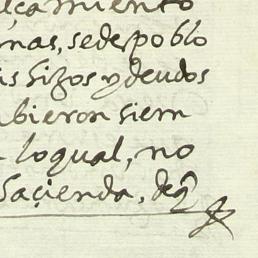 çamiento
nas, sedespoblo
s hijos y deudos
bieron siem
loqual, no
haçienda, deq̃